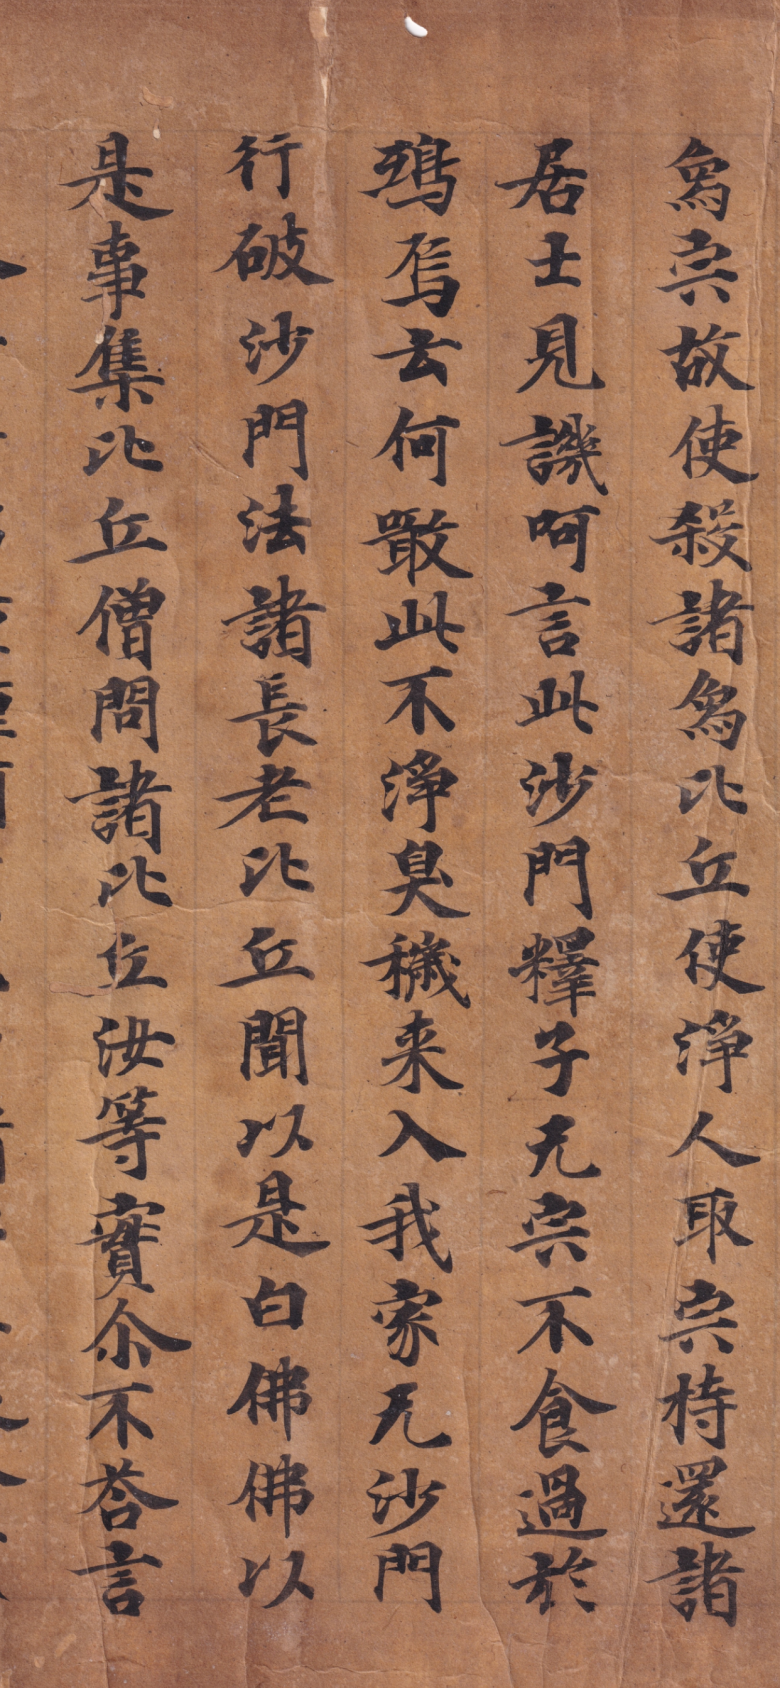 象宍故使殺諸象比丘使淨人取宍持還諸
居士見譏呵言此沙門釋子无宍不食過於
鵄烏云何噉此不淨臭穢来入我家无沙門
行破沙門法諸長老比丘聞以是白佛佛以
是事集比丘僧問諸比丘汝等實尒不荅言